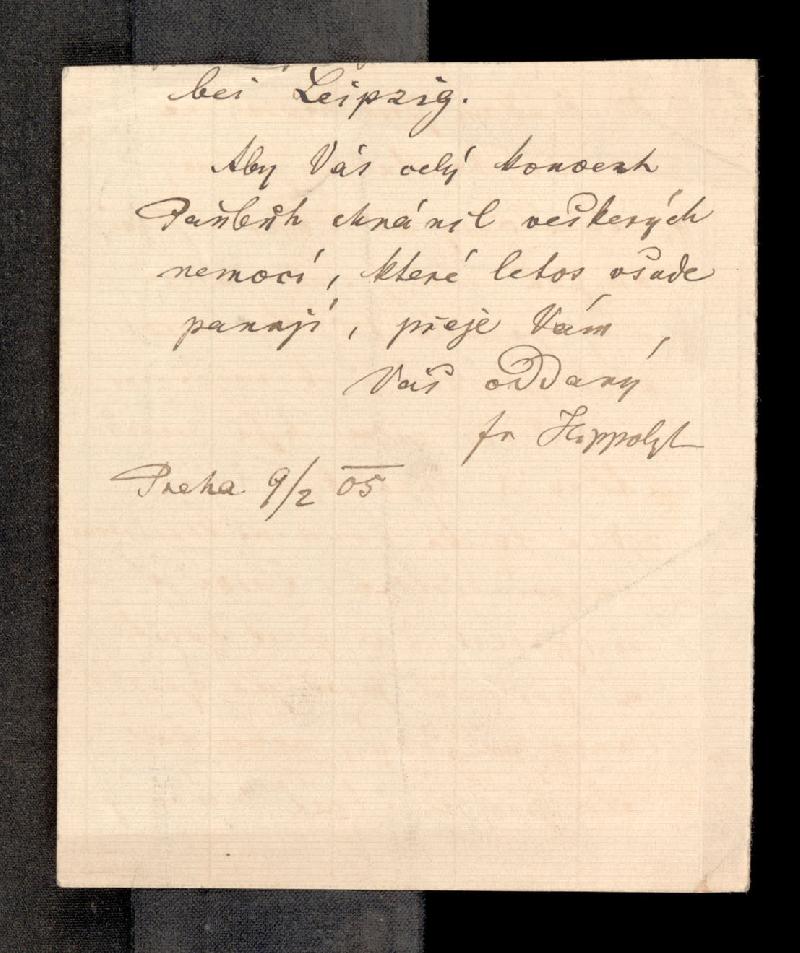 bei Leipzig.
Aby Vás celý konvent
Pán Bůh chránil veškerých
nemocí, které letos všude
panují, přeje Vám,
Váš oddaný
fr Hippolyt
Praha 9/2 05